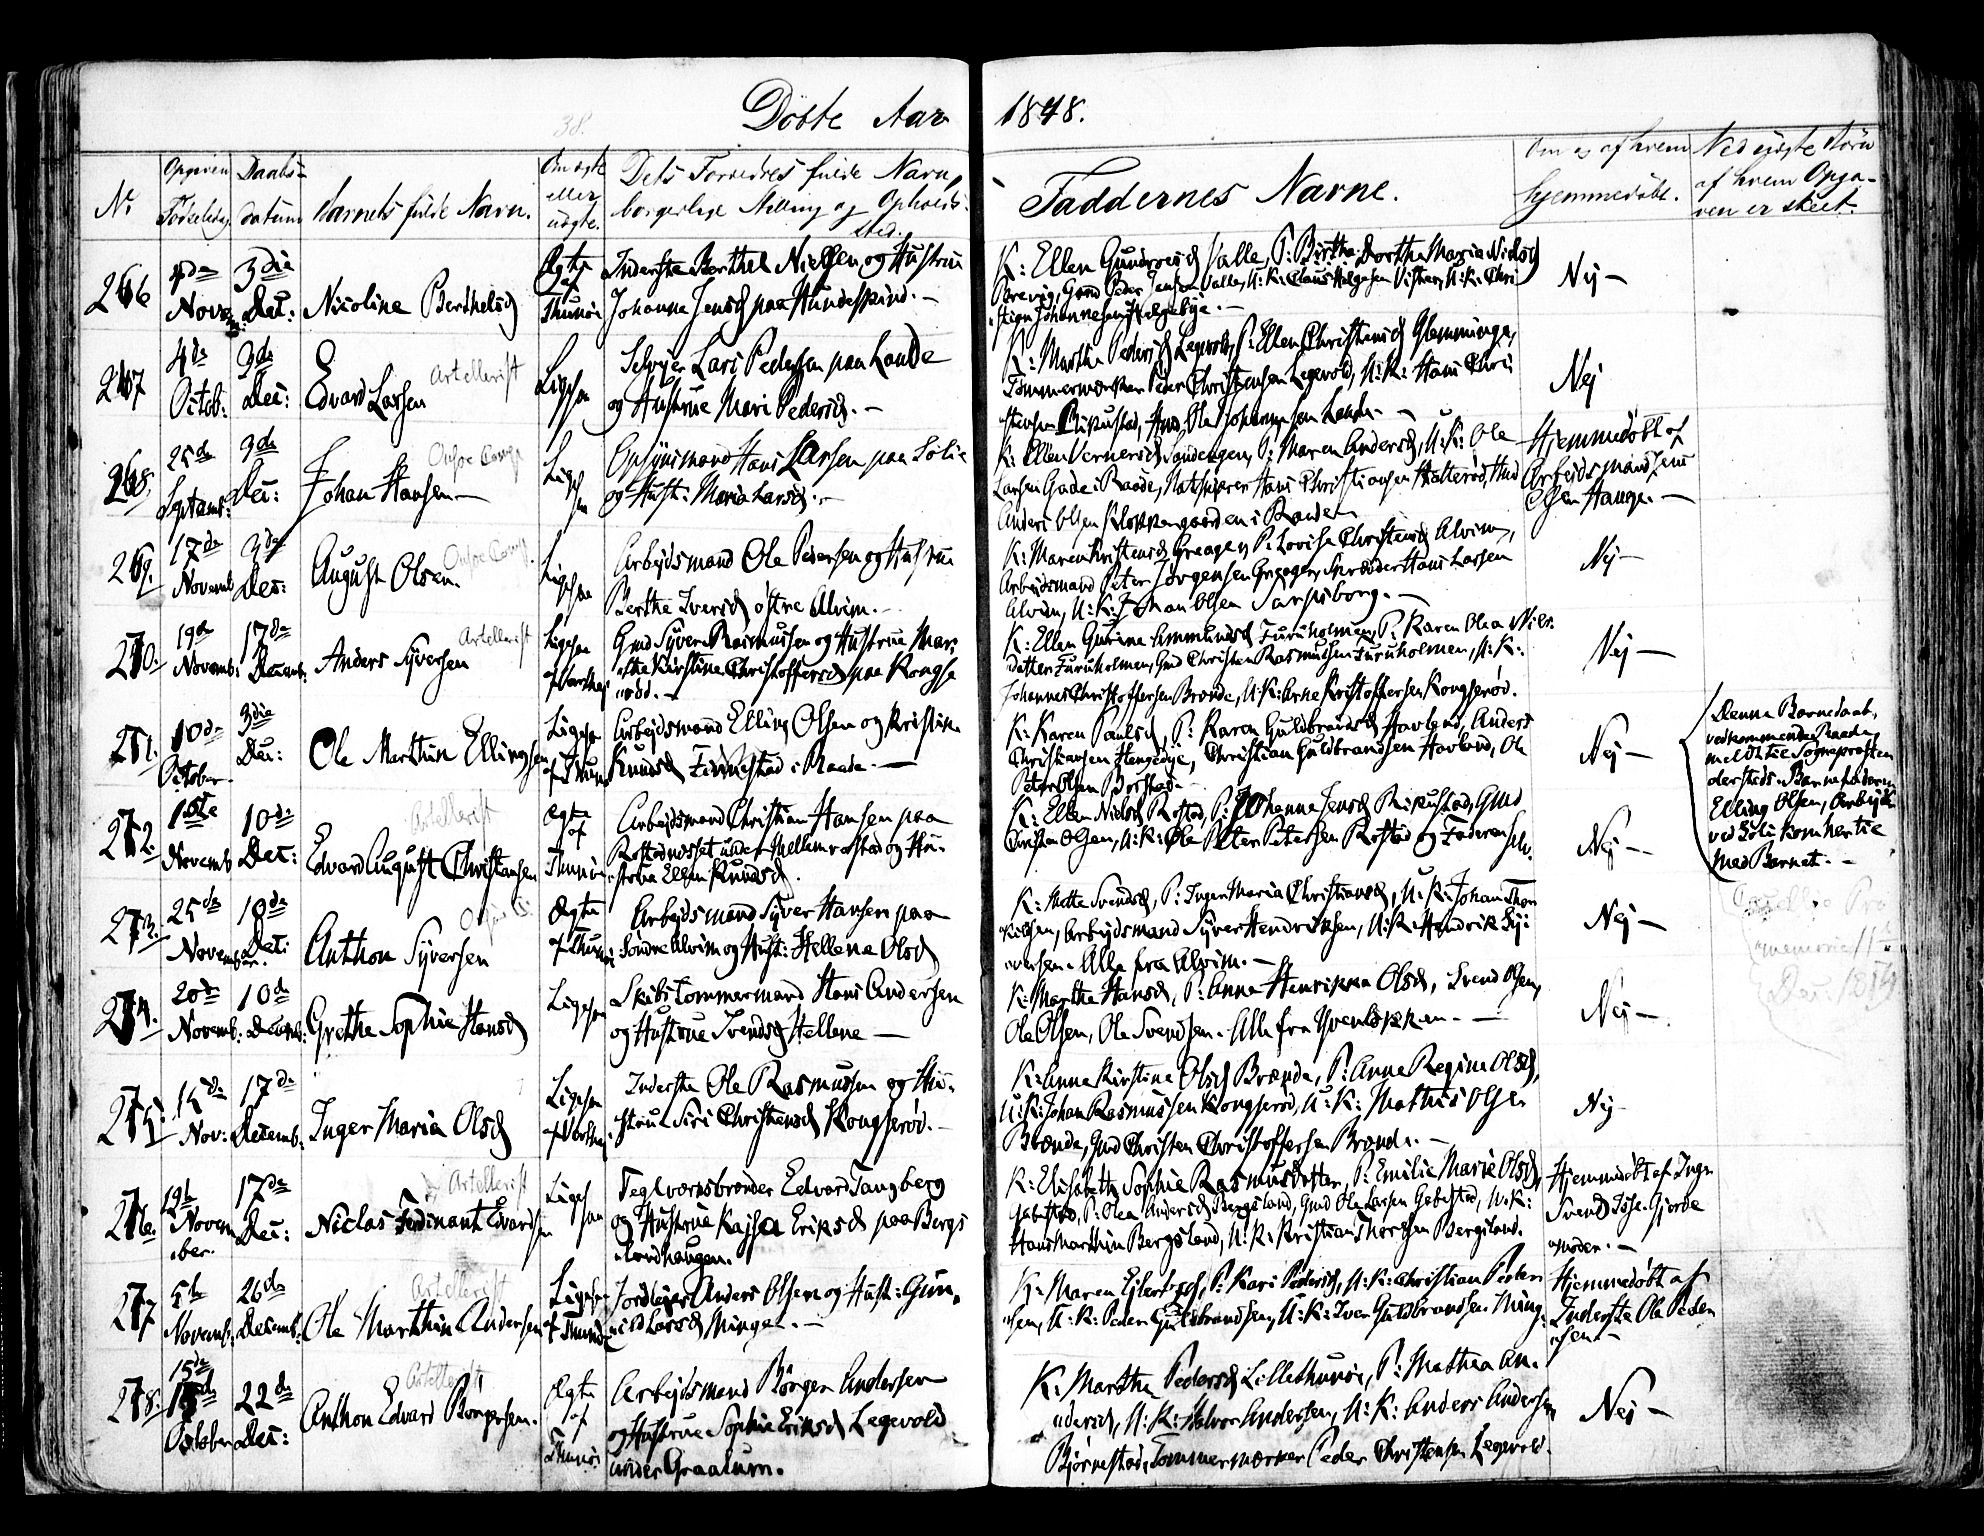 Döbte Aar 1848.
No
Opgiven Fødselsdag
Daabsdatum
Barnets fulde Navn.
Om ægte eller uægte.
Dets Forældres fulde Navn,
borgerlige Stilling og Opholds-
sted.
Faddernes Navne.
Om og af hvem
hjemmedöbt.
Ved uægte Börn
af hvem Opga-
ven er skeet.
266
4de Novem:
3die Dec:
Nicoline Berthelsd
Ægte af Thunöe
Inderste Berthel Nielsen og Hustrue
Johanna Jensd paa Hundeskind. —
K: Ellen Gundersd Valle, P: Birthe Dorthea Maria Nielsd
Brevig, Gmd Peder Jensen Valle, U: K: Claus Helgesen Visten, U: K: Chri
stian Johannesen Helgebye. —
Nej —
267
4de Octob:
3de Dec:
Edvard Larsen
Artellerist
Ligesaa
Selveier Lars Pedersen paa Lande
og Hustrue Mari Pedersd. —
K: Marthe Pedersd Legevold, P: Ellen Christensd Glemminge,
Tömmermærker Peder Christensen Legevold, U: K: Hans Chri
stensen Rikustad, Hmd Ole Johannesen Lande. —
Nej
268.
25de Septemb:
3de Dec:
Johan Hansen —
Ligesaa
Opsynsmand Hans Larsen paa Solie
og Hust: Maria Larsd. —
K: Ellen Vernersd Sandengen, P: Maren Andersd, U: K: Ole
Larsen Gade i Raade, Hans Christiansen Hatteröd, Hmd
Anders Olsen Klokkergaarden i Raade
Hjemmedöbt af
Arbejdsmand Jens
Olsen Hauge. —
269.
17de Novemb
3de Dec:
August Olsen.
Ligesaa
Arbejdsmand Ole Pedersen og Hustrue
Berthe Iversd östre Alvim. —
K: Maren Kristensd Greager, P: Lovise Christensd Alvim,
Arbejdsmand Peter Jörgensen Greager, Skrædder Hans Larsen
Alvim, U: K: Johan Olsen Sarpsborg. —
Nej —
270.
19de Novemb:
17de Decemb:
Anders Syversen
Artellerist
Ligesaa af Varteig
Gmd Syver Rasmussen og Hustrue Mar
the Kirstine Christoffersd paa Kongse
röd. —
K: Ellen Gurine Ammundsd Furuholmen, P: Karen Olea Nils
datter Furuholmen, Gmd Christen Rasmussen Furuholmen, U: K:
Johannes Christoffersen Brænde, U: K: Arne Kristoffersen Kongseröd.
Nej —
271.
10de October
3die Dec:
Ole Marthin Ellingsen
Ligesaa af Thunöe
Arbejdsmand Elling Olsen og Kristine
Knudsd Finnestad i Raade. —
K: Karen Paulsd, P: Karen Guldbrandsd Havland, Anders
Christiansen Hengebye, Christian Guldbrandsen Havland, Ole
Peter Olsen Borstad. —
Nej —
Denne Barnedaab,
vedkommende Raade,
meldt til Sognepræsten
dersteds. Barnefaderen
Elling Olsen, Arbejder
ved Solie kom hertil
med Barnet. —
272.
1ste Novemb
10de Dec:
Edvard August Christiansen
Artellerist
Ægte af Thunöe
Arbejdsmand Christian Hansen paa
Rostadnæsset under Mellem rostad og Hu-
strue Ellen Knudsd.
K: Ellen Nielsd Rostad, P: Johanna Jensd Rikustad, Gmd
Christen Olsen, U: K: Ole Peter Petersen Rostad og Faderen selv.
Nej —
273.
25de November.
10de Dec:
Anthon Syversen
Ægte af Thunöe
Arbejdsmand Syver Hansen paa
Söndre Alvim og Hust: Hellene Olsd
K: Mette Svendsd, P: Inger Maria Christiansd, U: K: Johan Thor
kilsen, Arbejdsmand Syver Hendriksen, U: K: Hendrik Sy-
versen. Alle fra Alvim. —
Nej —
274.
20de Novemb:
10de Decemb:
Grethe Sophie Hansd
Ligesaa
Skibs Tömmermand Hans Andersen
og Hustrue Svendsd Hellene —
K: Marthe Hansd, P: Anne Henrikka Olsd, Svend Olsen,
Ole Olsen, Ole Svendsen. Alle fra —
Nej —
275.
15de Nov:
17de Decemb:
Inger Maria Olsd
Ligesaa af Varteig
Inderste Ole Rasmussen og Hu-
strue Siri Christensd Kongseröd. —
K: Anne Kirstine Olsd Brænde, P: Anne Regine Olsd,
U: K: Johan Rasmussen Kongseröd, U: K: Mathis Olsen
Brænde, Gmd Christen Christoffersen Brænde. —
Nej
276.
19de November.
17de Dec:
Niclas Ferdinant Edvardsen
Artellerist
Ligesaa
Teglværksbrænder Edvard Tangberg
og Hustrue Kajsa Eriksd paa Bergs
landhaugen.
K: Elisabeth Sophie Rasmusdatter, P: Emilie Marie Olsd
Gabestad, P: Olea Andersd Bergsland, Gmd Ole Larsen Gabestad, U: K:
Hans Marthin Bergsland, U: K: Kristian Thorsen Bergsland.
Hjemmedöbt af Inger
Svendsd Gjorde
moder. —
277
5te Novemb:
26de Decemb:
Ole Marthin Andersen
Artellerist
Ligesaa af Thunöe
Jordleier Anders Olsen og Hust: Gun-
nild Larsd Minge. —
K: Maren Ejlertsd, P: Kari Pedersd, U: K: Christian Peder
sen, U: K: Peder Guldbrandsen, U: K: Iver Guldbrandsen Minge.
Hjemmedöbt af
Inderste Ole Peder
sen —
278.
15de October
22de Dec:
Anthon Edvard Börgersen.
Artellerist
Ægte af Thunöe
Arbejdsmand Börger Andersen
og Hustrue Sophie Eriksd Legevold
under Graalum.
K: Marthe Pedersd Lillethunöe, P: Mathea An-
dersd, U: K: Halvor Andersen, U: K: Anders Andersen
Björnstad, Tömmermærker Peder Christensen Legevold.
Nej —